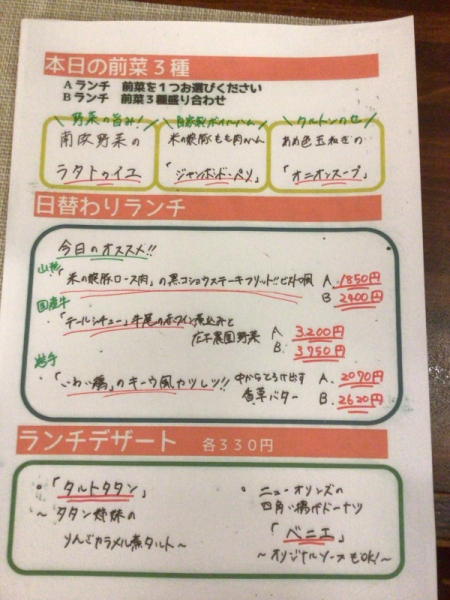 本日の前菜3種
Aランチ 前菜を1つお選びください
Bランチ 前菜3種盛り合わせ
野菜の旨み!
南欧野菜の
ラタトゥイユ
自家製ボイルハム
米の娘豚もも肉ハム
「ジャンボン・ド・パリ」
クルトンのせ
あめ色玉ねぎの
「オニオンスープ」
日替わりランチ
今日のオススメ!!
山形
「米の娘豚ロース肉」の黒コショウステーキフリット!!ビストロ風 A. 1850円
B 2400円
国産牛
・「テールシチュー」牛尾の赤ワイン煮込みと
庄本農園野菜 A 3,200円
B. 3750円
岩手
・「いわい鶏」のキーウ風カツレツ!! 中からとろけ出す
香草バター A. 2070円
B. 2620円
ランチデザート 各330円
・「タルトタタン」
~タタン姉妹の
りんごカラメル煮タルト~
・ニューオリンズの
四角い揚げドーナツ
「ベニエ」
~オリジナルソースもOK!~